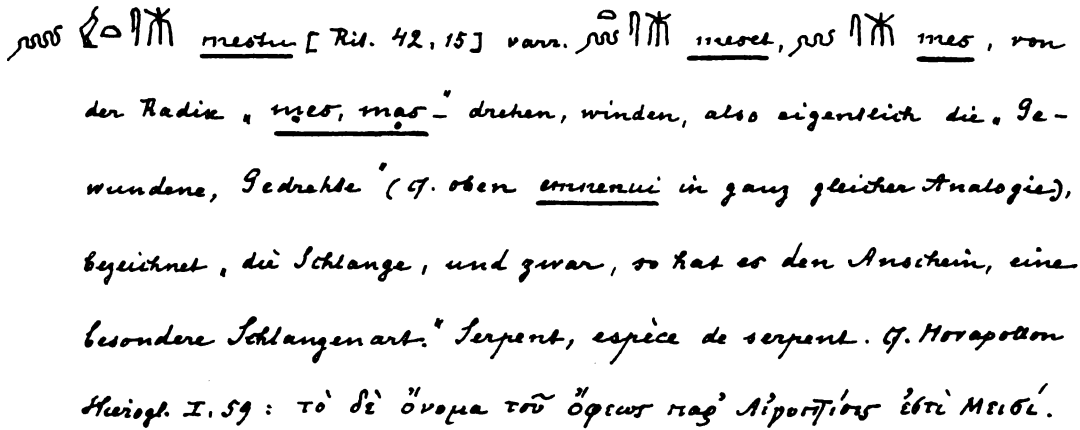 mestu [Rit. 42, 15] varr. meset, mes, von
der Radix „mes, mas-“ drehen, winden, also eigentlich die „Ge-
wundene, Gedrehte“ (cf. oben emnenui in ganz gleicher Analogie),
bezeichnet „die Schlange, und zwar, so hat es den Anschein, eine
besondere Schlangenart.“ Serpent, espèce de serpent. Cf. Horapollon
Hierogl. I, 59: τὸ δὲ ὄνομα τοῦ ὄφεως παρ' Αἰγυπτίοις ἐστὶ Μεισί.